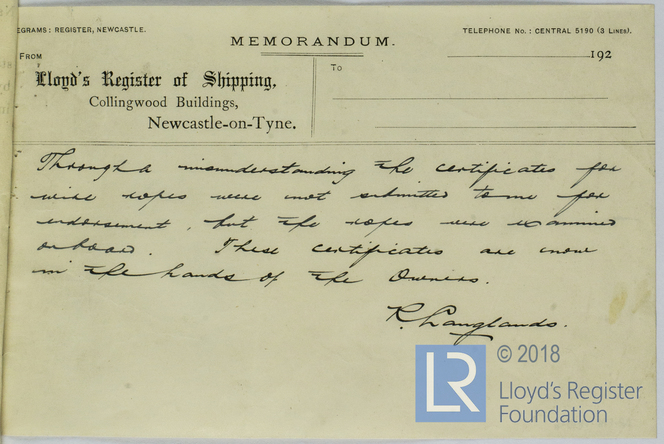 EGRAMS: REGISTER, NEWCASTLE.
TELEPHONE No.: CENTRAL 5190 (3 LINES).
MEMORANDUM.
192
FROM
Lloyd's Register of Shipping,
To
Collingwood Buildings,
Newcastle-on-Tyne.
Through a misunderstanding the certificates for
wire ropes were not submitted to me for
endorsement, but the ropes were examined
onboard. These certificates are now
in the hands of the Owners.
R. Langlands.
LR
© 2018
Lloyd's Register
Foundation